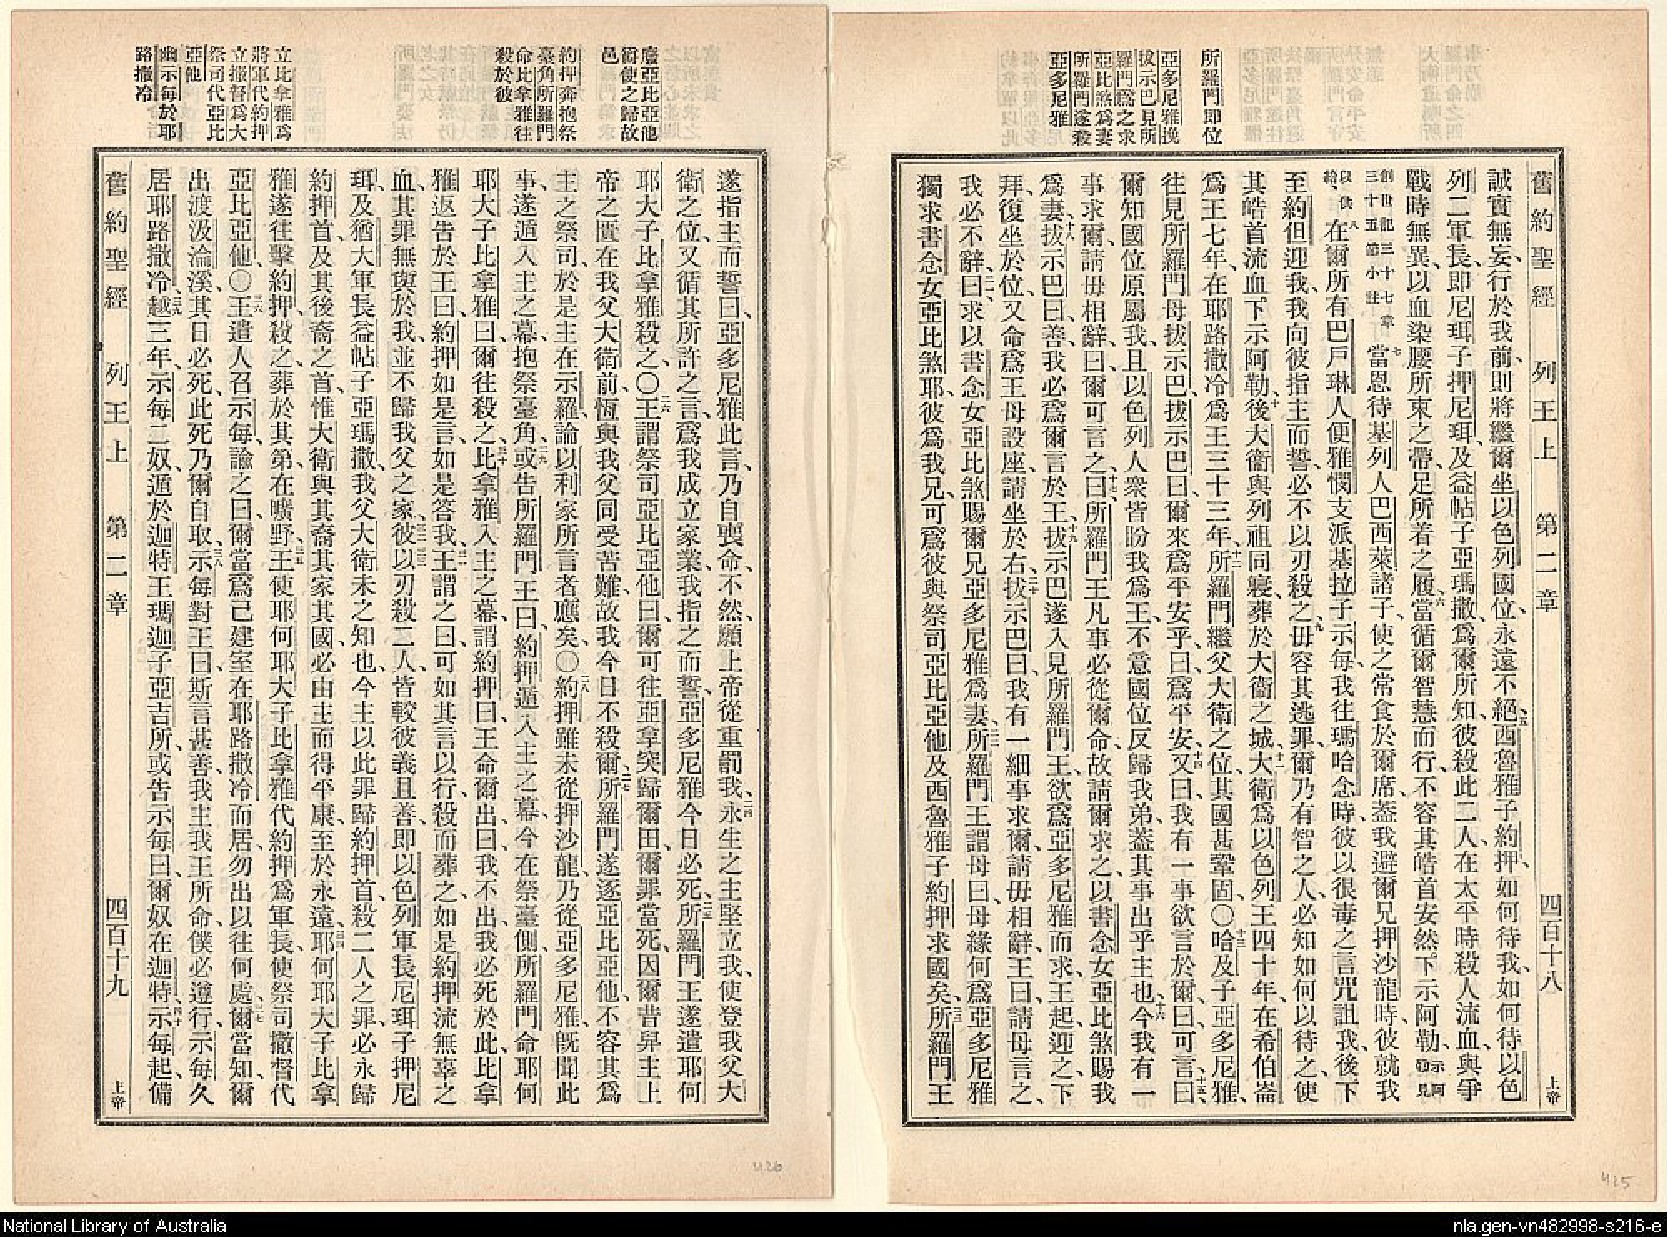 舊約聖經 列王上 第二章 四百十八 上帝
所羅門即位
亞多尼雅挽
拔示巴見所
羅門爲之求
亞比煞爲妻
所羅門遂殺
亞多尼雅
誠實無妄行於我前、則將繼爾坐以色列國位、永遠不絕、五西魯雅子約押、如何待我、如何待以色
列二軍長、即尼珥子押尼珥、及益帖子亞瑪撒、爲爾所知、彼殺此二人、在太平時殺人流血、與爭
戰時無異、以血染腰所束之帶、足所着之履、六當循爾智慧而行、不容其皓首安然下示阿勒、示阿勒見
創世記三十七章三十五節小註七當恩待基列人巴西萊諸子、使之常食於爾席、蓋我避爾兄押沙龍時、彼就我
八在爾所有巴戶琳人便雅憫支派基拉子示每、我往瑪哈念時、彼以很毒之言咒詛我、後下
至約但迎我、我向彼指主而誓、必不以刃殺之、九毋容其逃罪、爾乃有智之人、必知如何以待之、使
其皓首流血、下示阿勒、十後大衛與列祖同寢、葬於大衛之城、十一大衛爲以色列王四十年、在希伯崙
爲王七年、在耶路撒冷爲王三十三年、十二所羅門繼父大衛之位、其國甚鞏固、〇十三哈及子亞多尼雅、
往見所羅門母拔示巴、拔示巴曰、爾來爲平安乎、曰、爲平安、十四又曰、我有一事欲言於爾、曰、可言、十五曰、
爾知國位原屬我、且以色列人衆皆盼我爲王、不意國位反歸我弟、蓋其事出乎主也、十六今我有一
事求爾、請毋相辭、曰、爾可言之、十七曰、所羅門王凡事必從爾命、故請爾求之、以書念女亞比煞賜我
爲妻、十八拔示巴曰、善、我必爲爾言於王、十九拔示巴遂入見所羅門王、欲爲亞多尼雅而求、王起迎之、下
拜、復坐於位、又命爲王母設座、請坐於右、二十拔示巴曰、我有一細事求爾、請毋相辭、王曰、請母言之、
我必不辭、二一曰、求以書念女亞比煞賜爾兄亞多尼雅爲妻、二二所羅門王謂母曰、母緣何爲亞多尼雅
獨求書念女亞比煞耶、彼爲我兄、可爲彼與祭司亞比亞他及西魯雅子約押求國矣、二三所羅門王
415
舊約聖經 列王上 第二章 四百十九 上帝
廢亞比亞他
爾使之歸故
邑
約押奔抱祭
臺角所羅門
命比拿雅往
殺於彼
立比拿雅爲
將軍代約押
立撒督爲大
祭司代亞比
亞他
幽示每於耶
路撒冷
遂指主而誓曰、亞多尼雅此言、乃自喪命、不然、願上帝從重罰我、二四永生之主堅立我、使登我父大
衛之位、又循其所許之言、爲我成立家業、我指之而誓、亞多尼雅今日必死、二五所羅門王遂遣耶何
耶大子比拿雅殺之、〇二六王謂祭司亞比亞他曰、爾可往亞拿突歸爾田、爾罪當死、因爾昔舁主上
帝之匱在我父大衛前、恆與我父同受苦難、故我今日不殺爾、二七所羅門遂逐亞比亞他、不容其爲
主之祭司、於是主在示羅論以利家所言者應矣、〇二八約押雖未從押沙龍、乃從亞多尼雅、旣聞此
事、遂遁入主之幕、抱祭臺角、二九或告所羅門王曰、約押遁入主之幕、今在祭臺側、所羅門命耶何
耶大子比拿雅曰、爾往殺之、三十比拿雅入主之幕、謂約押曰、王命爾出、曰、我不出、我必死於此、比拿
雅返告於王曰、約押如是言、如是答我、三一王謂之曰、可如其言以行、殺而葬之、如是約押流無辜之
血、其罪無與於我、並不歸我父之家、三二彼以刃殺二人、皆較彼義且善、即以色列軍長尼珥子押尼
珥、及猶大軍長益帖子亞瑪撒、我父大衛未之知也、今主以此罪歸約押首、三三殺二人之罪、必永歸
約押首、及其後裔之首、惟大衛與其裔、其家其國、必由主而得平康、至於永遠、三四耶何耶大子比拿
雅、遂往擊約押殺之、葬於其第、在曠野、三五王使耶何耶大子比拿雅代約押爲軍長、使祭司撒督代
亞比亞他、〇三六王遣人召示每、諭之曰、爾當爲己建室在耶路撒冷而居、勿出以往何處、三七爾當知、爾
出渡汲淪溪、其日必死、此死乃爾自取、三八示每對王曰、斯言甚善、我主我王所命、僕必遵行、示每久
居耶路撒冷、三九越三年、示每二奴遁於迦特王瑪迦子亞吉所、或告示每曰、爾奴在迦特、四十示每起、備
426
National Library of Australia
nla.gen-vn482998-s216-e